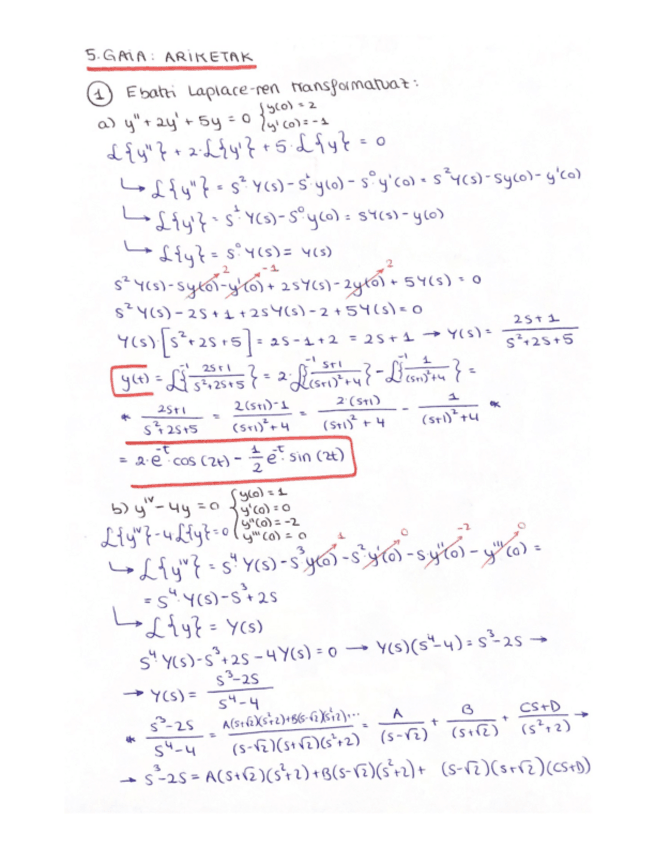 5. GAIA: ARIKETAK
1 Ebatzi Laplace-ren transformatuaz:
a) y'' + 2y' + 5y = 0 { y(0) = 2
y'(0) = -1
ℒ{y''} + 2·ℒ{y'} + 5·ℒ{y} = 0
↳ ℒ{y''} = s² Y(s) - s¹ y(0) - s⁰ y'(0) = s² Y(s) - sy(0) - y'(0)
↳ ℒ{y'} = s¹ Y(s) - s⁰ y(0) = sY(s) - y(0)
↳ ℒ{y} = s⁰ Y(s) = Y(s)
2 -1 2
s² Y(s) - sy(0) - y'(0) + 2sY(s) - 2y(0) + 5Y(s) = 0
s² Y(s) - 2s + 1 + 2sY(s) - 2 + 5Y(s) = 0
Y(s)·[s² + 2s + 5] = 2s - 1 + 2 = 2s + 1 → Y(s) = (2s + 1)/(s² + 2s + 5)
y(t) = ℒ⁻¹{(2s+1)/(s²+2s+5)} = 2·ℒ⁻¹{(s+1)/((s+1)²+4)} - ℒ⁻¹{1/((s+1)²+4)} =
* (2s+1)/(s²+2s+5) = (2(s+1)-1)/((s+1)²+4) = (2·(s+1))/((s+1)²+4) - 1/((s+1)²+4) *
= 2·e^-t cos(2t) - 1/2 e^-t·sin(2t)
b) y^IV - 4y = 0 { y(0) = 1
y'(0) = 0
y''(0) = -2
y'''(0) = 0
ℒ{y^IV} - 4ℒ{y} = 0
1 0 -2 0
↳ ℒ{y^IV} = s⁴ Y(s) - s³ y(0) - s² y'(0) - sy''(0) - y'''(0) =
= s⁴·Y(s) - s³ + 2s
↳ ℒ{y} = Y(s)
s⁴ Y(s) - s³ + 2s - 4Y(s) = 0 → Y(s)(s⁴-4) = s³-2s →
→ Y(s) = (s³-2s)/(s⁴-4)
* (s³-2s)/(s⁴-4) = (A(s+√2)(s²+2)+B(s-√2)(s²+2)...)/((s-√2)(s+√2)(s²+2)) = A/(s-√2) + B/(s+√2) + (Cs+D)/(s²+2) →
→ s³-2s = A(s+√2)(s²+2) + B(s-√2)(s²+2) + (s-√2)(s+√2)(Cs+D)